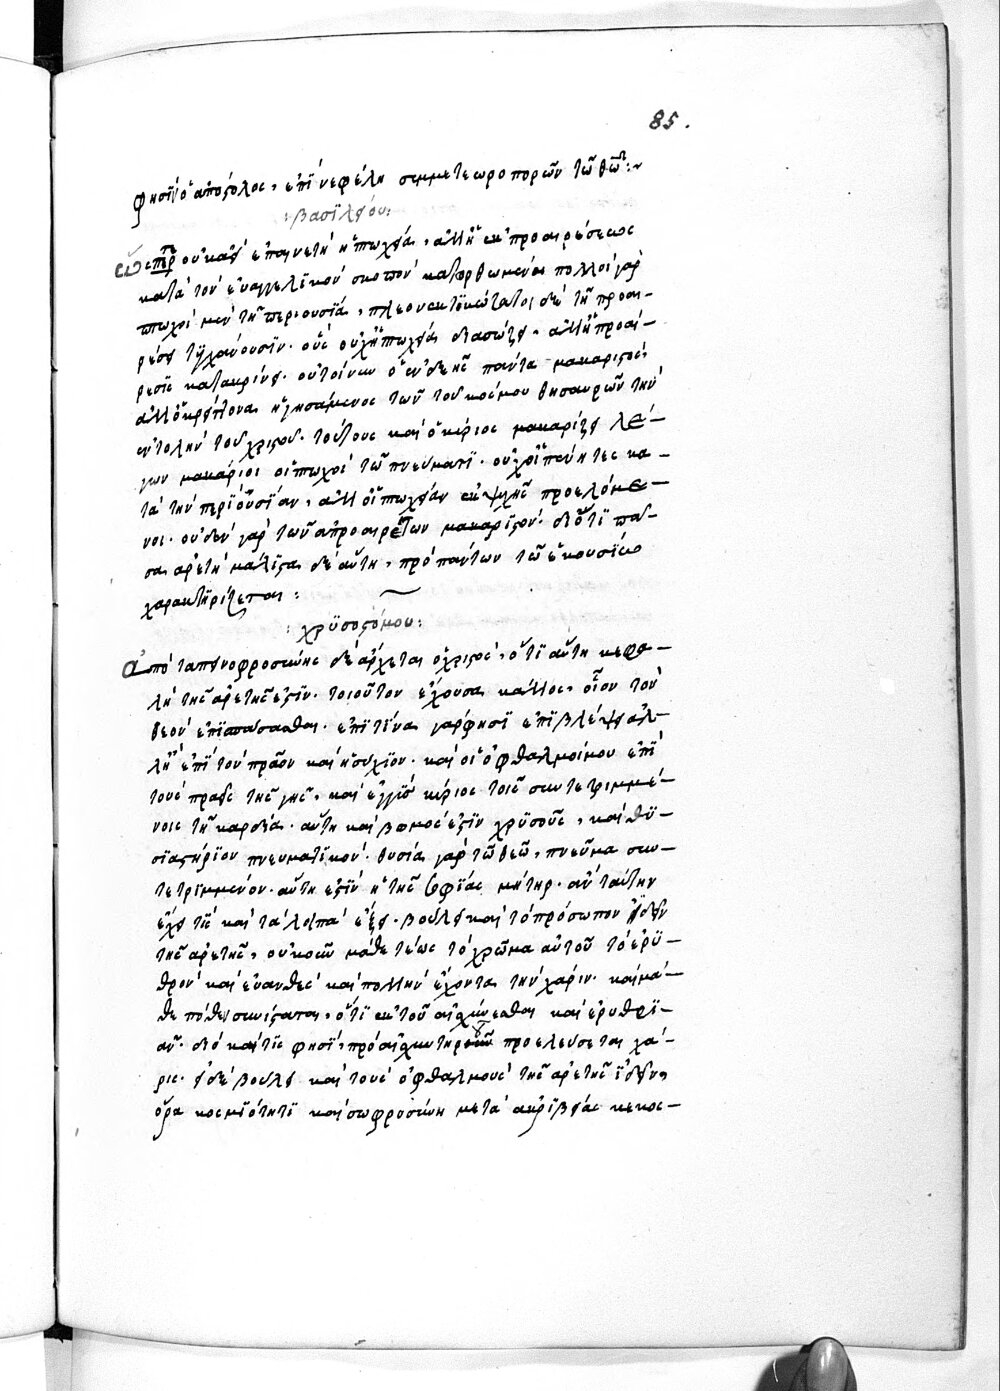 85.
φησὶν ὁ ἀπόστολος, ἐπὶ νεφέλη συμμετεωροπορῶν τῶ θῶ:~
:βασιλείου:
Ὥσπερ οὐ κἀκεῖ ἐπαινετὴ ἡ πτωχεία, ἀλλ' ἡ ἐκ προαιρέσεως
κατὰ τὸν εὐαγγελικὸν σκοπὸν κατορθωμένη πολλοὶ γὰρ
πτωχοὶ μὲν τῆ περιουσία, πλεονεκτικώτατοι δὲ τῆ προαι-
ρέσει τυγχάνουσιν· οὓς οὐχ ἡ πτωχεία διασώζει, ἀλλ' ἡ προαί-
ρεσις κατακρίνει. οὐ τοίνυν ὁ ἐνδεὴς πάντα μακαριστὸς,
ἀλλ' ὁ κρείττονα ἡγησάμενος τῶν τοῦ κόσμου θησαυρῶν τὴν
ἐντολὴν τοῦ χριστοῦ. τούτους καὶ ὁ κύριος μακαρίζει λέ-
γων μακάριοι οἱ πτωχοὶ τῶ πνεύματι· οὐχ οἱ πένητες κα-
τὰ τὴν περιουσίαν, ἀλλ' οἱ πτωχείαν ἐκ ψυχῆς προελόμε-
νοι. οὐδὲν γὰρ τῶν ἀπροαιρέτων μακαριστόν· διότι πᾶ-
σα ἀρετὴ μάλιστα δὲ αὕτη, πρὸ πάντων τῶ ἑκουσίω
χαρακτηρίζεται:
:χρυσοστόμου:
Ἀπὸ ταπεινοφροσύνης δὲ ἄρχεται ὁ χριστὸς, ὅτι αὕτη κεφα-
λὴ τῆς ἀρετῆς ἐστιν· τοιοῦτον ἔχουσα κάλλος, οἷον τὸν
θεὸν ἐπισπάσασθαι. ἐπὶ τίνα γὰρ φησὶ ἐπιβλέψω ἀλ-
λ' ἢ ἐπὶ τὸν πρᾶον καὶ ἡσύχιον· καὶ οἱ ὀφθαλμοί μου ἐπὶ
τοὺς πραεῖς τῆς γῆς, καὶ ἐγγὺς κύριος τοῖς συντετριμμέ-
νοις τῆ καρδία. αὕτη καὶ βωμός ἐστιν χρυσοῦς, καὶ θυ-
σιαστήριον πνευματικόν· θυσία γὰρ τῶ θεῶ, πνεῦμα συν-
τετριμμένον. αὕτη ἐστὶν ἡ τῆς σοφίας μήτηρ. ἂν ταύτην
ἔχει τὶς καὶ τὰ λοιπὰ ἕξει. βούλει καὶ τὸ πρόσωπον ἰδεῖν
τῆς ἀρετῆς, οὐκοῦν μάθε τέως τὸ χρῶμα αὐτοῦ τὸ ἐρυ-
θρὸν καὶ εὐανθὲς καὶ πολλὴν ἔχοντα τὴν χάριν. καὶ μά-
θε πόθεν συνίσταται, ὅτι ἐκ τοῦ αἰσχύνεσθαι καὶ ἐρυθρι-
ᾶν. διὸ καὶ τὶς φησὶ, πρὸ αἰσχυντηροῦ προελεύσεται χά-
ρις. εἰ δὲ βούλει καὶ τοὺς ὀφθαλμοὺς τῆς ἀρετῆς ἰδεῖν,
ὅρα κοσμιότητι καὶ σωφροσύνη μετὰ ἀκριβείας κεκοσ-